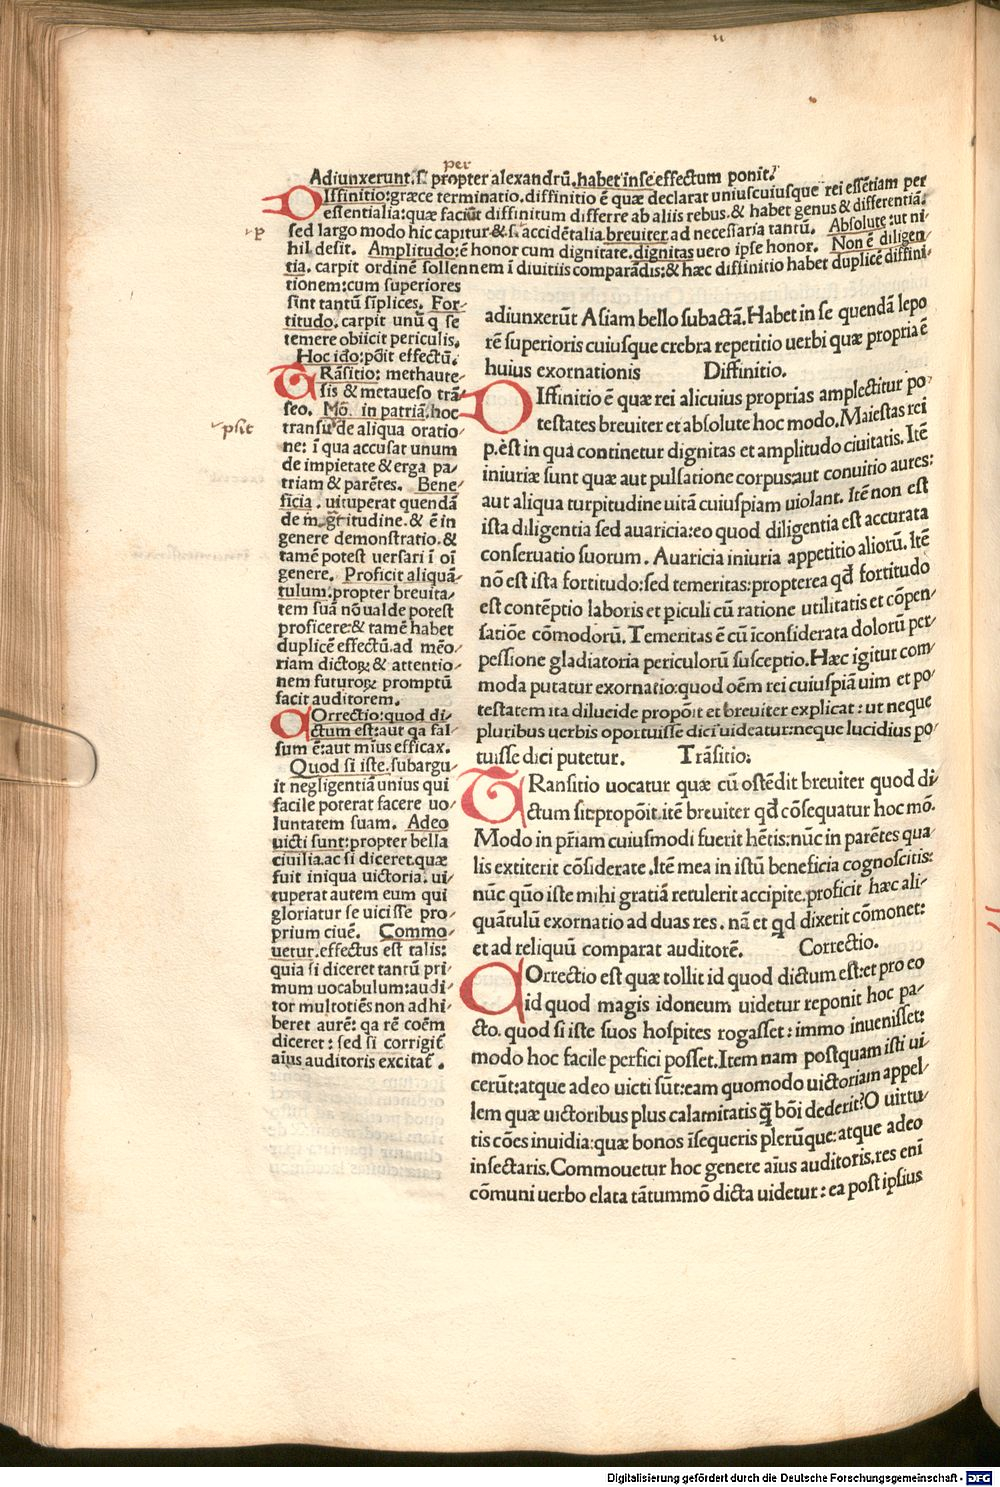 per
Adiunxerunt.ſ. propter alexandrū.habet inſe effectum ponit.
DIffinitio:græce terminatio.diffinitio ē quæ declarat uniuſcuiuſque rei eſſētiam per
eſſentialia:quæ faciūt diffinitum differre ab aliis rebus.& habet genus & differentiā.
p
ſed largo modo hic capitur & ſ. accidētalia breuiter ad neceſſaria tantū. Abſolute:ut ni-
hil deſit. Amplitudo:ē honor cum dignitate.dignitas uero ipſe honor. Non ē diligen-
tia. carpit ordinē ſollennem ī diuitiis comparādis:& hæc diffinitio habet duplicē diffini-
tionem:cum ſuperiores
ſint tantū ſīplices. For-
titudo. carpit unū q ſe
temere obiicit periculis.
Hoc ido:pōit effectū.
TRāſitio: methaute-
ſis & metaueſo trā-
ſeo. Mō. in patriā.hoc
pſit
tranſit de aliqua oratio-
ne: ī qua accuſat unum
de impietate & erga pa-
triam & parētes. Bene-
ficia. uituperat quendā
de īgratitudine.& ē in
genere demonſtratio.&
tamē poteſt uerſari ī oī
genere. Proficit aliquā-
tulum:propter breuita-
tem ſuā nō ualde poteſt
proficere:& tamē habet
duplicē effectū.ad mēo-
riam dictoꝝ & attentio-
nem futuroꝝ promptū
facit auditorem.
COrrectio:quod di-
ctum eſt:aut qa fal-
ſum ē:aut mīus efficax.
Quod ſi iſte.ſubargu-
it negligentiā unius qui
facile poterat facere uo-
luntatem ſuam. Adeo
uicti ſunt:propter bella
ciuilia.ac ſi diceret.quæ
fuit iniqua uictoria. ui-
tuperat autem eum qui
gloriatur ſe uiciſſe pro-
prium ciuē. Commo-
uetur.effectus eſt talis:
quia ſi diceret tantū pri-
mum uocabulum:audi-
tor multotiēs non adhi-
beret aurē: qa rē coēm
diceret: ſed ſi corrigit
aīus auditoris excitat.
adiunxerūt Aſiam bello ſubactā.Habet in ſe quendā lepo
rē ſuperioris cuiuſque crebra repetitio uerbi quæ propria ē
huius exornationis Diffinitio.
DIffinitio ē quæ rei alicuius proprias amplectitur po-
teſtates breuiter et abſolute hoc modo.Maieſtas rei
p.ēſt in qua continetur dignitas et amplitudo ciuitatis. Itē
iniuriæ ſunt quæ aut pulſatione corpus:aut conuitio aures:
aut aliqua turpitudine uitā cuiuſpiam uiolant. Itē non eſt
iſta diligentia ſed auaricia:eo quod diligentia eſt accurata
conſeruatio ſuorum. Auaricia iniuria appetitio aliorū. Itē
nō eſt iſta fortitudo:ſed temeritas:propterea qđ fortitudo
eſt contēptio laboris et piculi cū ratione utilitatis et cōpen-
ſatiōe cōmodorū. Temeritas ē cū īconſiderata dolorū per-
peſſione gladiatoria periculorū ſuſceptio. Hæc igitur com-
moda putatur exornatio:quod oēm rei cuiuſpiā uim et po-
teſtatem ita dilucide propōit et breuiter explicat: ut neque
pluribus uerbis oportuiſſe dici uideatur:neque lucidius po-
tuiſſe dici putetur. Trāſitio:
TRanſitio uocatur quæ cū oſtēdit breuiter quod di-
ctum ſit:propōit.itē breuiter qđ cōſequatur hoc mō.
Modo in pr̄iam cuiuſmodi fuerit hētis:nūc in parētes qua-
lis extiterit cōſiderate.Itē mea in iſtū beneficia cognoſcitis:
nūc quō iſte mihi gratiā retulerit accipite.proficit hæc ali-
quātulū exornatio ad duas res. nā et qd dixerit cōmonet:
et ad reliquū comparat auditorē. Correctio.
COrrectio eſt quæ tollit id quod dictum eſt:et pro eo
id quod magis idoneum uidetur reponit hoc pa-
cto. quod ſi iſte ſuos hoſpites rogaſſet: immo inueniſſet:
modo hoc facile perfici poſſet.Item nam poſtquam iſti ui
cerūt:atque adeo uicti ſūt:eam quomodo uictoriam appel-
lem quæ uictoribus plus calamitatis ꝗ̄ bōi dederit?O uirtu-
tis cōes inuidia:quæ bonos īſequeris plerūque:atque adeo
inſectaris.Commouetur hoc genere aīus auditoris.res enī
cōmuni uerbo elata tātummō dicta uidetur: ea poſt ipſius
Digitalisierung gefördert durch die Deutsche Forschungsgemeinschaft - DFG